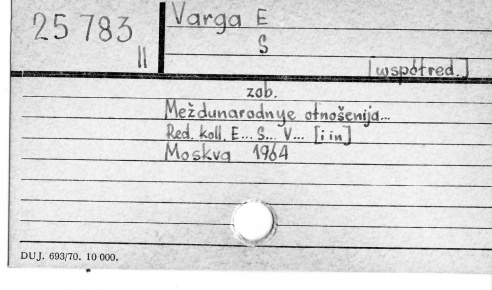 25 783
II
Varga E
S
[współred.]
zob.
Meždunarodnye otnošenija...
Red. koll. E... S... V... [i in]
Moskva 1964
DUJ. 693/70. 10 000.